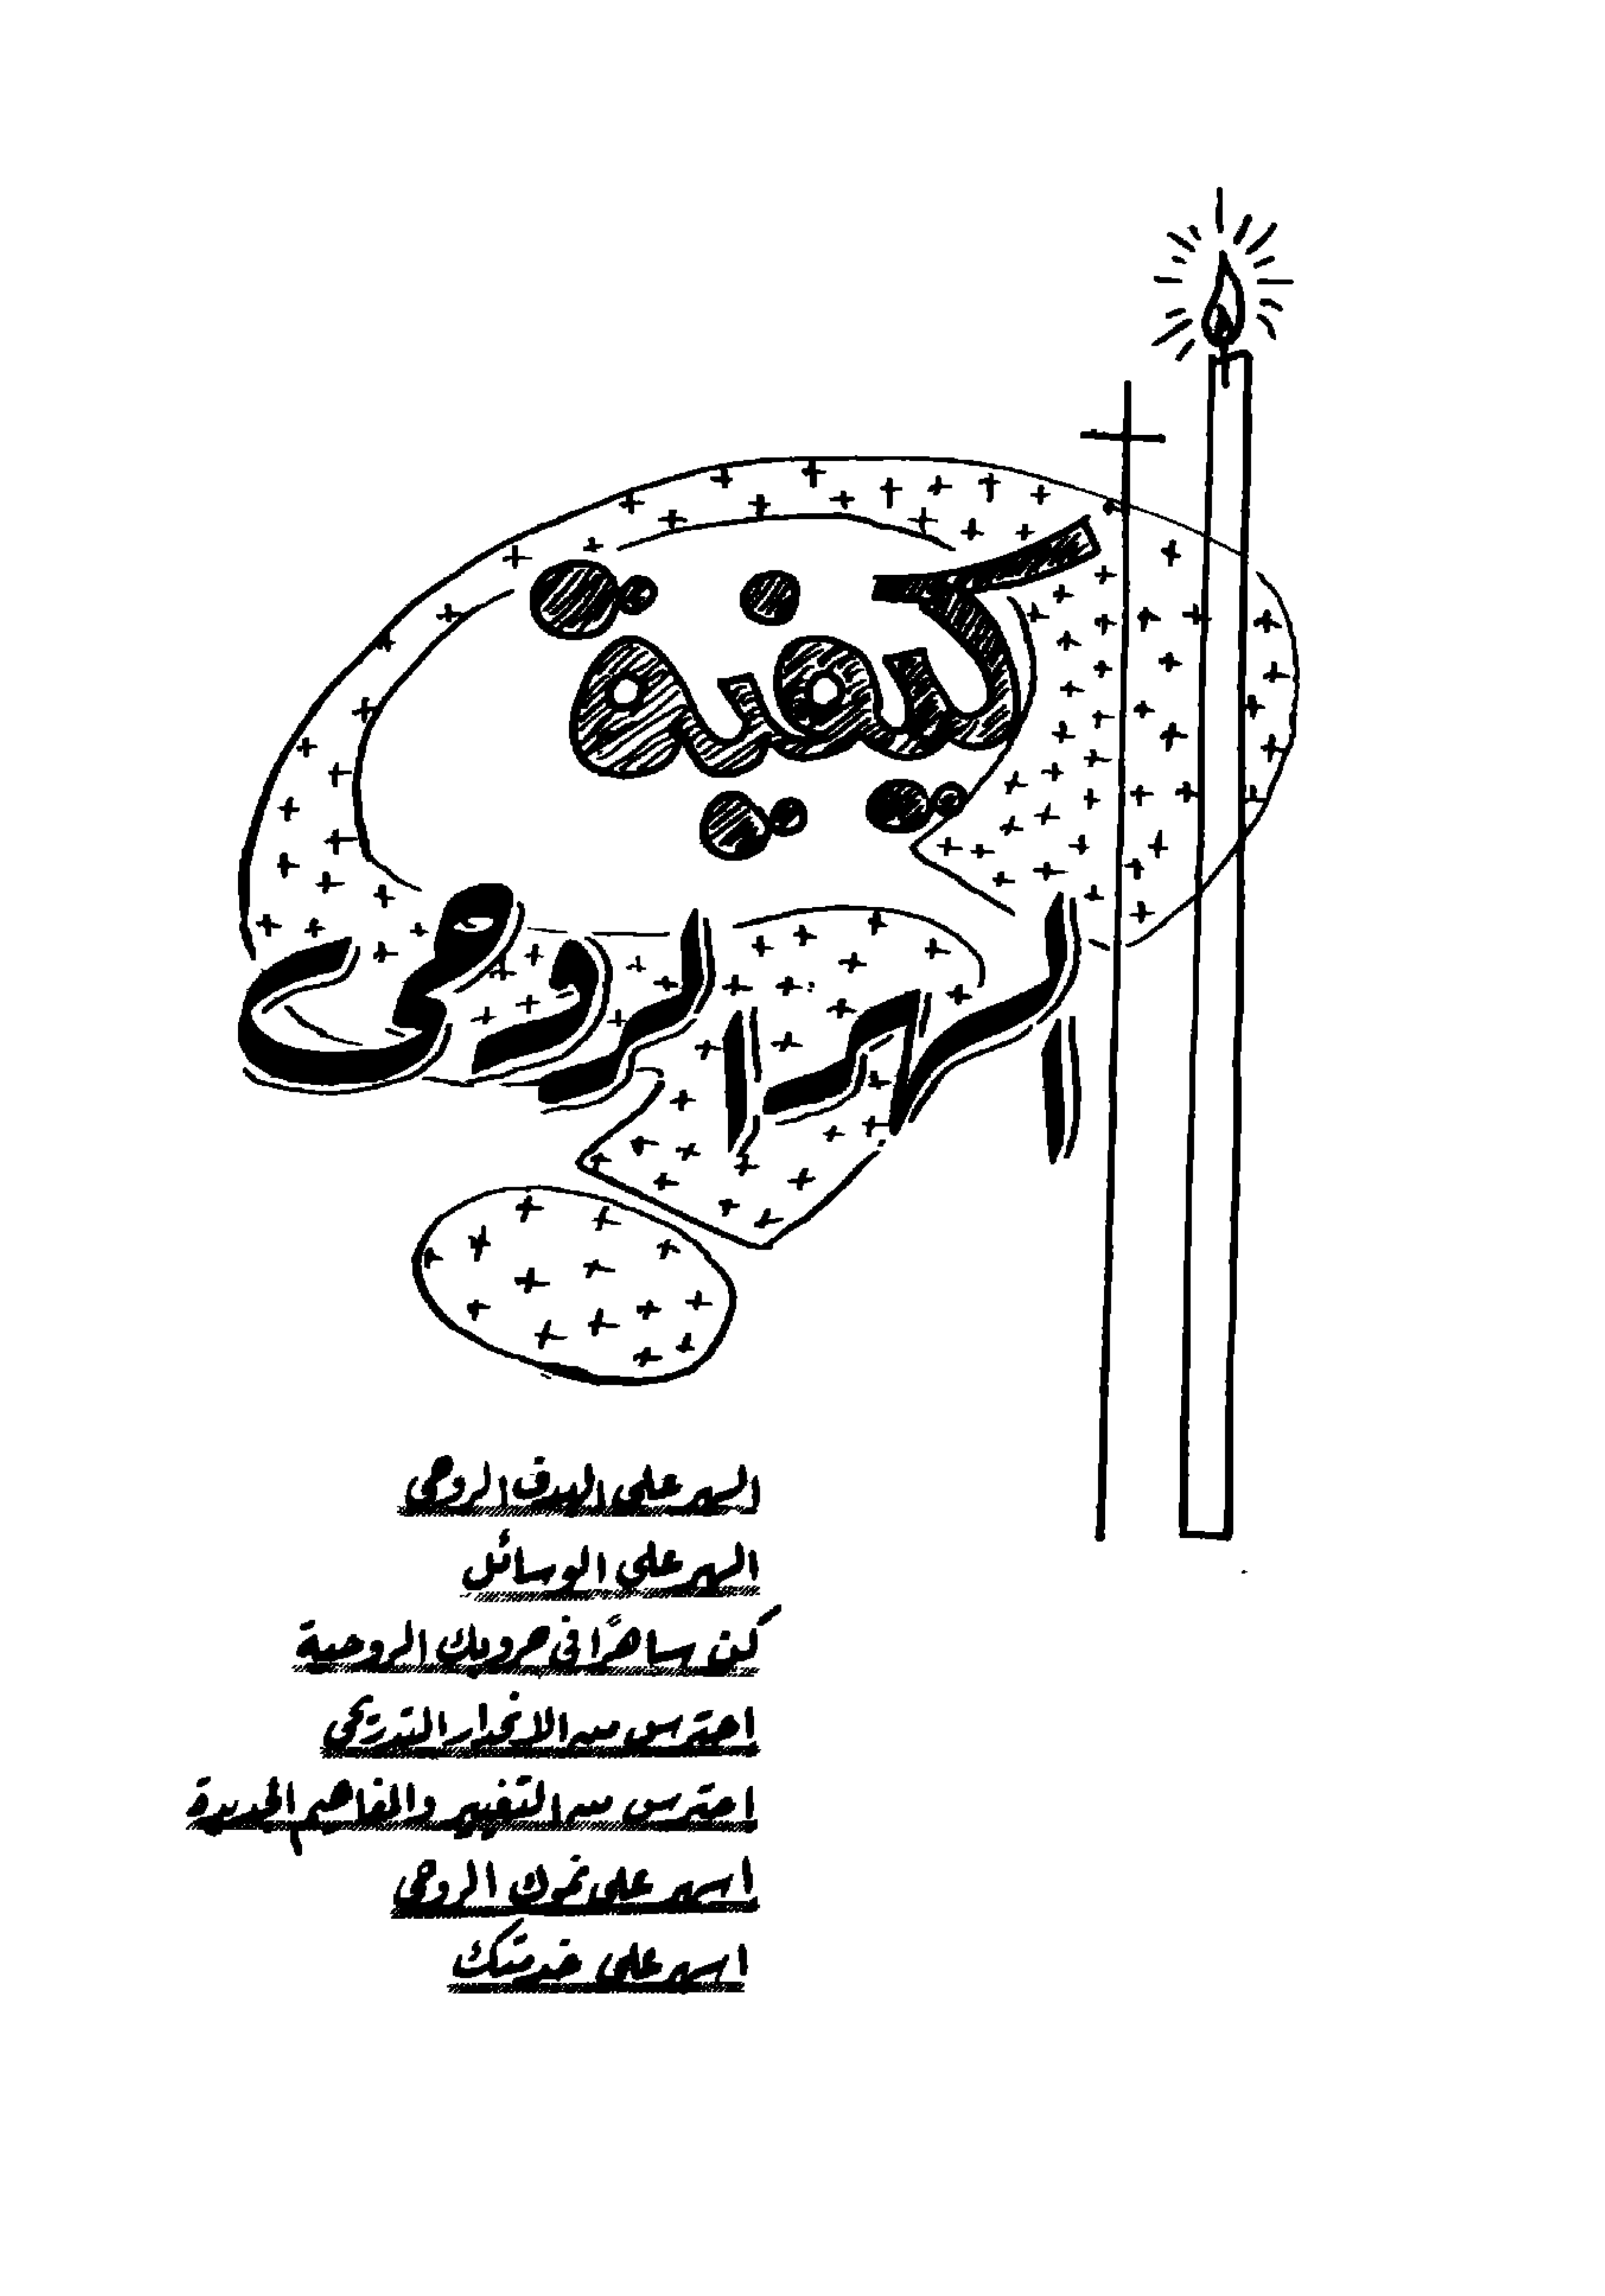 كيفية
السهر الروحى
السهر على الهدف الروحى
السهر على الوسائل
كن ساهرًا فى حروبك الروحية
احترس من الانحدار التدريجى
احترس من التغيير والمفاهيم الجديدة
اسهر على نموك الروحى
اسهر على خدمتك